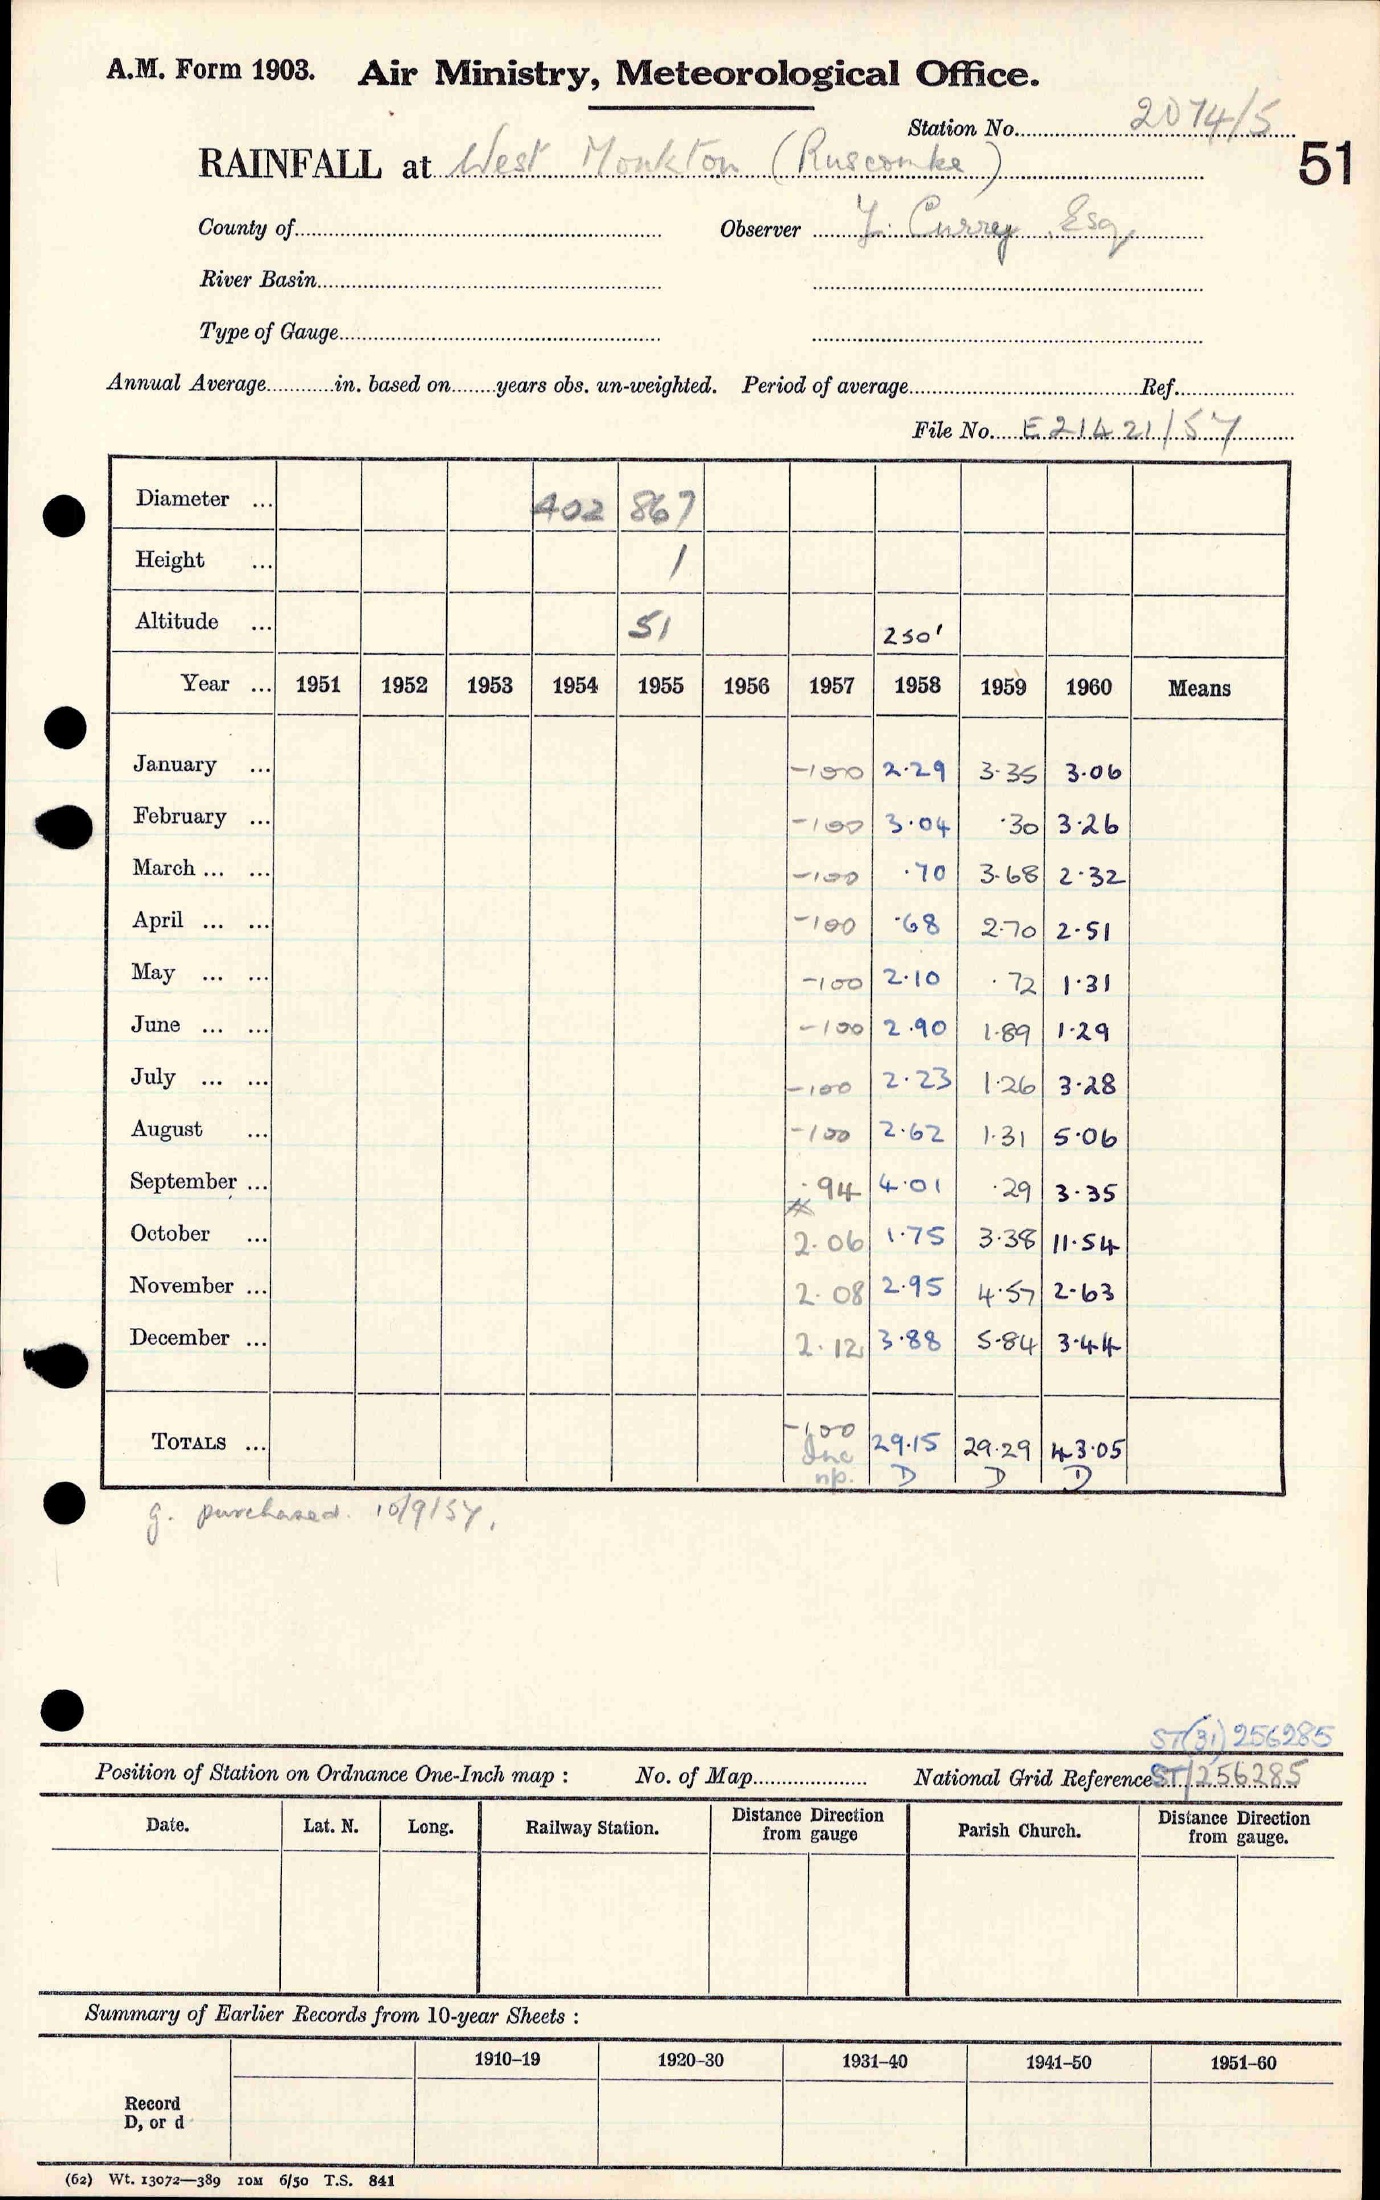 A.M. Form 1903. Air Ministry, Meteorological Office.
Station No. 2074/5
RAINFALL at West Monkton (Ruscombe) 51
County of Observer Y. Currey Esq
River Basin
Type of Gauge
Annual Average in. based on years obs. un-weighted. Period of average Ref.
File No. E21421/57
Diameter ... 402 867
Height ... 1
Altitude ... 51 250'
Year ... 1951 1952 1953 1954 1955 1956 1957 1958 1959 1960 Means
January ... -100 2.29 3.35 3.06
February ... -100 3.04 .30 3.26
March ... ... -100 .70 3.68 2.32
April ... ... -100 .68 2.70 2.51
May ... ... -100 2.10 .72 1.31
June ... ... -100 2.90 1.89 1.29
July ... ... -100 2.23 1.26 3.28
August ... -100 2.62 1.31 5.06
September ... .94 4.01 .29 3.35
October ... 2.06 1.75 3.38 11.54
November ... 2.08 2.95 4.57 2.63
December ... 2.12 3.88 5.84 3.44
TOTALS ... -100 29.15 29.29 43.05
Inc
np. D D D
g. purchased 10/9/57.
ST(31)256285
Position of Station on Ordnance One-Inch map : No. of Map National Grid Reference ST/256285
Date. Lat. N. Long. Railway Station. Distance from gauge Direction Parish Church. Distance from gauge. Direction
Summary of Earlier Records from 10-year Sheets :
1910–19 1920–30 1931–40 1941–50 1951–60
Record
D, or d
(62) Wt. 13072—389 10M 6/50 T.S. 841